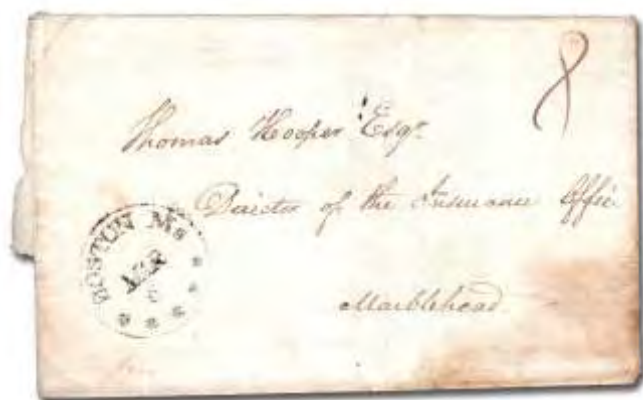 8
Thomas Hooper Esqr.
Director of the Insurance Office
Marblehead
BOSTON Ms
APR